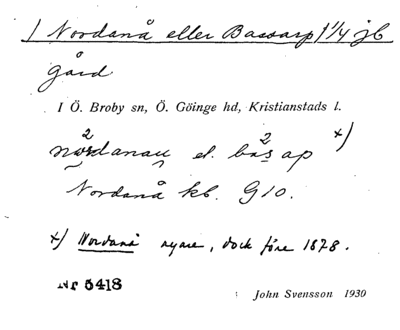 ) Nordanå eller Bassarp 1 1/4 jb
gård
I Ö. Broby sn, Ö. Göinge hd, Kristianstads l.
nordanau el. basap x)
Nordanå kb. G10.
x) Nordanå nyare, dock före 1678.
Nr 5418
John Svensson 1930